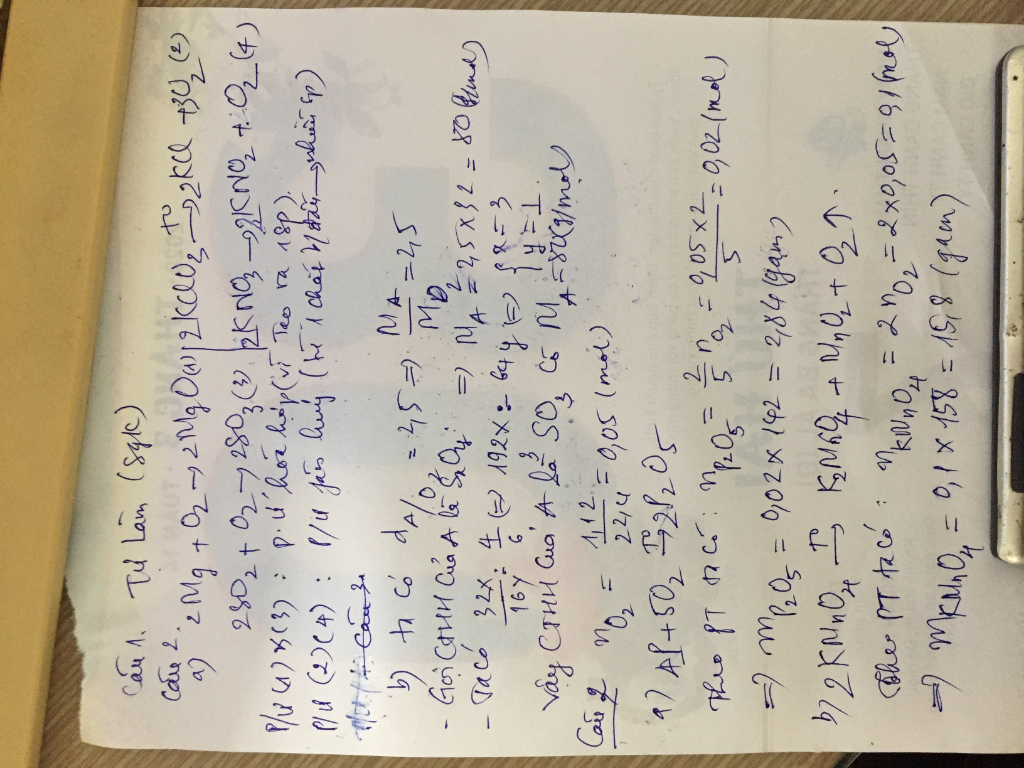 Câu 1. Tự làm (sgk)
Câu 2.
a) 2Mg + O2 → 2MgO (1) | 2KClO3 →T° 2KCl + 3O2 (2)
2SO2 + O2 → 2SO3 (3) | 2KNO3 → 2KNO2 + O2 (4)
P/Ư (1) × (3) : P.Ư hoá hợp (vì Tạo ra 1sp)
P/Ư (2) (4) : P/Ư phân huỷ (Từ 1 chất → nhiều sp)
b) ta có dA/O2 = 2,5 => MA/MO2 = 2,5
- Gọi CTHH của A là SxOy: => MA = 2,5 x 32 = 80 g/mol
- Ta có 32x/16y = 4/6 <=> 192x = 64y <=> { x = 1 y = 3
Vậy CTHH của A là SO3 có MA = 80 (g/mol)
Câu 2 nO2 = 1,12/22,4 = 0,05 (mol)
a) 4P + 5O2 →T° 2P2O5
Theo PT ta có : nP2O5 = 2/5 nO2 = 0,05 x 2/5 = 0,02 (mol)
=> mP2O5 = 0,02 x 142 = 2,84 (gam)
b) 2KMnO4 →T° K2MnO4 + MnO2 + O2 ↑.
Theo PT ta có : nKMnO4 = 2 nO2 = 2 x 0,05 = 0,1 (mol)
=> mKMnO4 = 0,1 x 158 = 15,8 (gam)